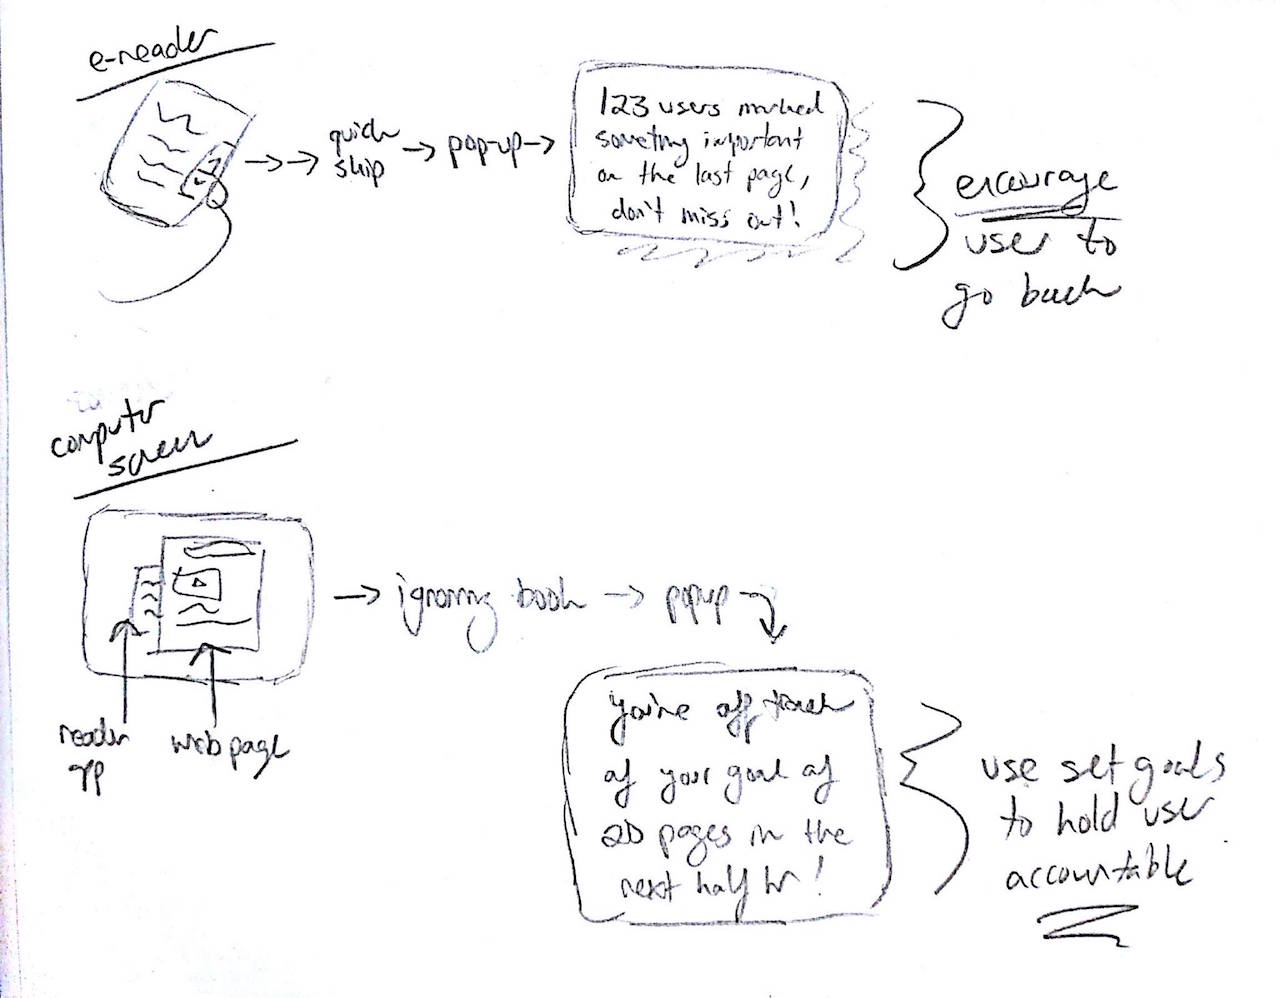 e-reader
quick
skip
pop-up
123 users marked
something important
on the last page,
don't miss out!
encourage
user to
go back
computer
screen
ignoring book
popup
reader
app
web page
you're off track
of your goal of
20 pages in the
next half hr!
use set goals
to hold user
accountable